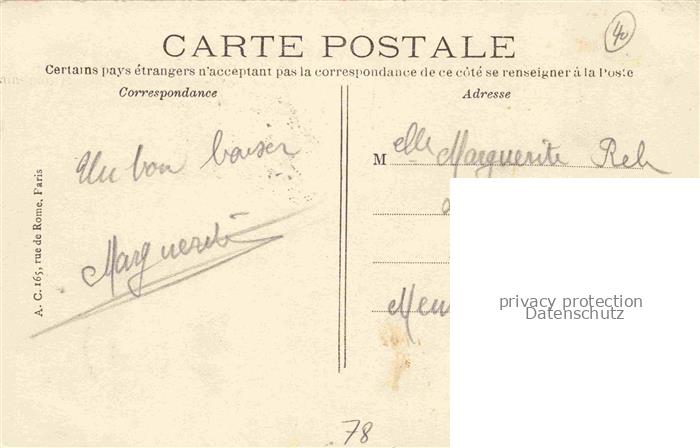 40
CARTE POSTALE
Certains pays étrangers n'acceptent pas la correspondance de ce côté se renseigner à la Poste
Correspondance
Adresse
Un bon baiser
Marguerite
Melle Marguerite Reh
Meu
A. C. 165, rue de Rome, Paris
privacy protection
Datenschutz
78